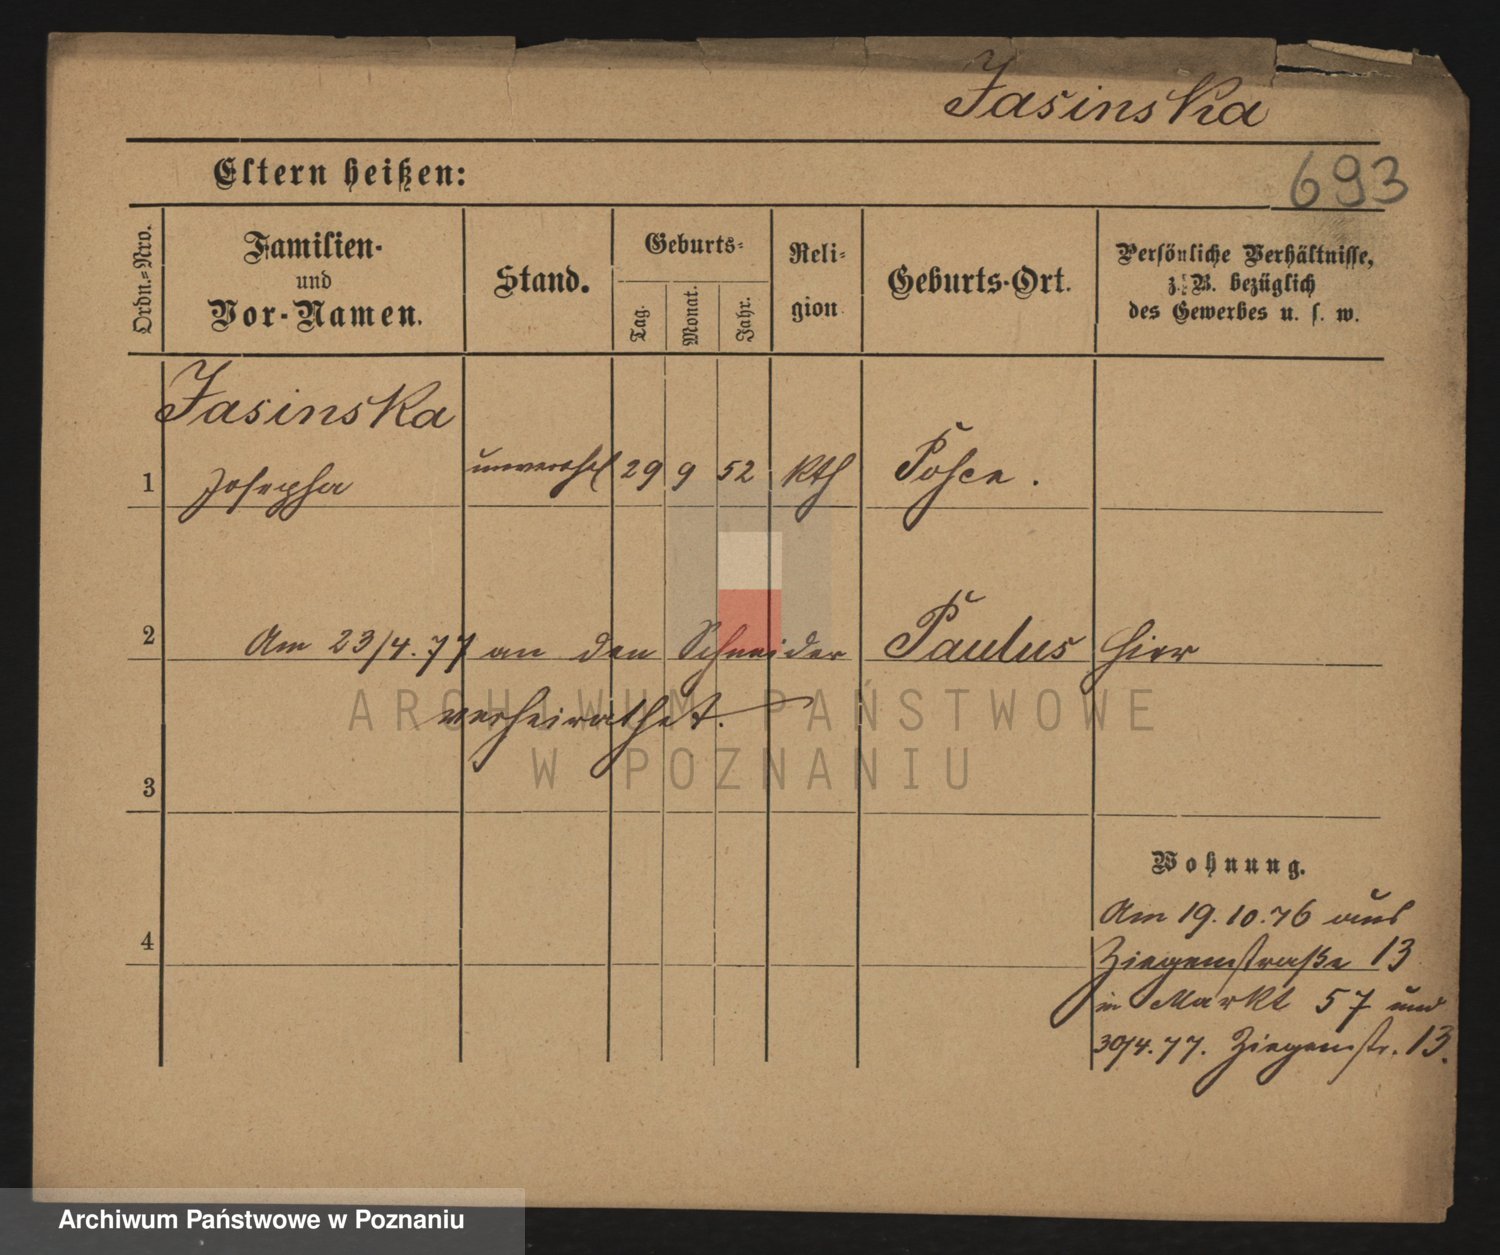 Jasinska
Eltern heißen:
693
Ordn.=Nro.
Familien-
und
Vor-Namen.
Stand.
Geburts=
Tag.
Monat.
Jahr.
Reli=
gion
Geburts-Ort.
Persönliche Verhältnisse,
z. B. bezüglich
des Gewerbes u. s. w.
Jasinska
1 Josepha unverehel 29 9 52 kth
2 Am 23/4.77 an den Schneider Paulus hier
verheirathet.
3
4
Wohnung.
Am 19.10.76 aus
Ziegenstraße 13
in Markt 57 und
30/4.77. Ziegenstr. 13.
ARCHIWUM PAŃSTWOWE
W POZNANIU
Archiwum Państwowe w Poznaniu